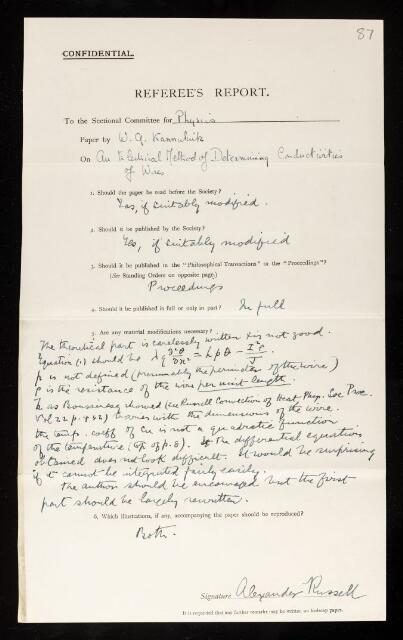 87
CONFIDENTIAL.
REFEREE'S REPORT.
To the Sectional Committee for Physics
Paper by W. G. Kannuluik
On An Electrical Method of Determining Conductivities
of Wires
1. Should the paper be read before the Society?
Yes, if suitably modified.
2. Should it be published by the Society?
Yes, if suitably modified
3. Should it be published in the "Philosophical Transactions" or the "Proceedings"?
(See Standing Orders on opposite page.)
Proceedings
4. Should it be published in full or only in part? In full
5. Are any material modifications necessary?
The theoretical part is carelessly written & is not good.
Equation (1) should be λq ∂²θ/∂x² = hpθ − I²ρ/J.
p is not defined (presumably the perimeter of the wire)
ρ is the resistance of the wire per unit length.
h as Boussinesq showed (cu Russell Convection of Heat Phys. Soc Proc.
Vol 22 p. 432) varies with the dimensions of the wire.
The temp. coeff of Cu is not a quadratic function
of the temperature (cf. p. 8). The differential equation
obtained does not look difficult. It would be surprising
if it cannot be integrated fairly easily.
The author should be encouraged but the first
part should be largely rewritten.
6. Which illustrations, if any, accompanying the paper should be reproduced?
Both.
Signature Alexander Russell
It is requested that any further remarks may be written on foolscap paper.